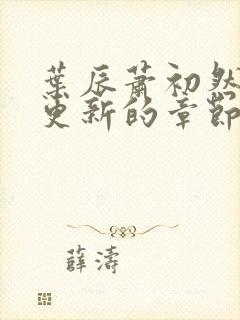 葉辰蕭初然
更新的章節
薛濤